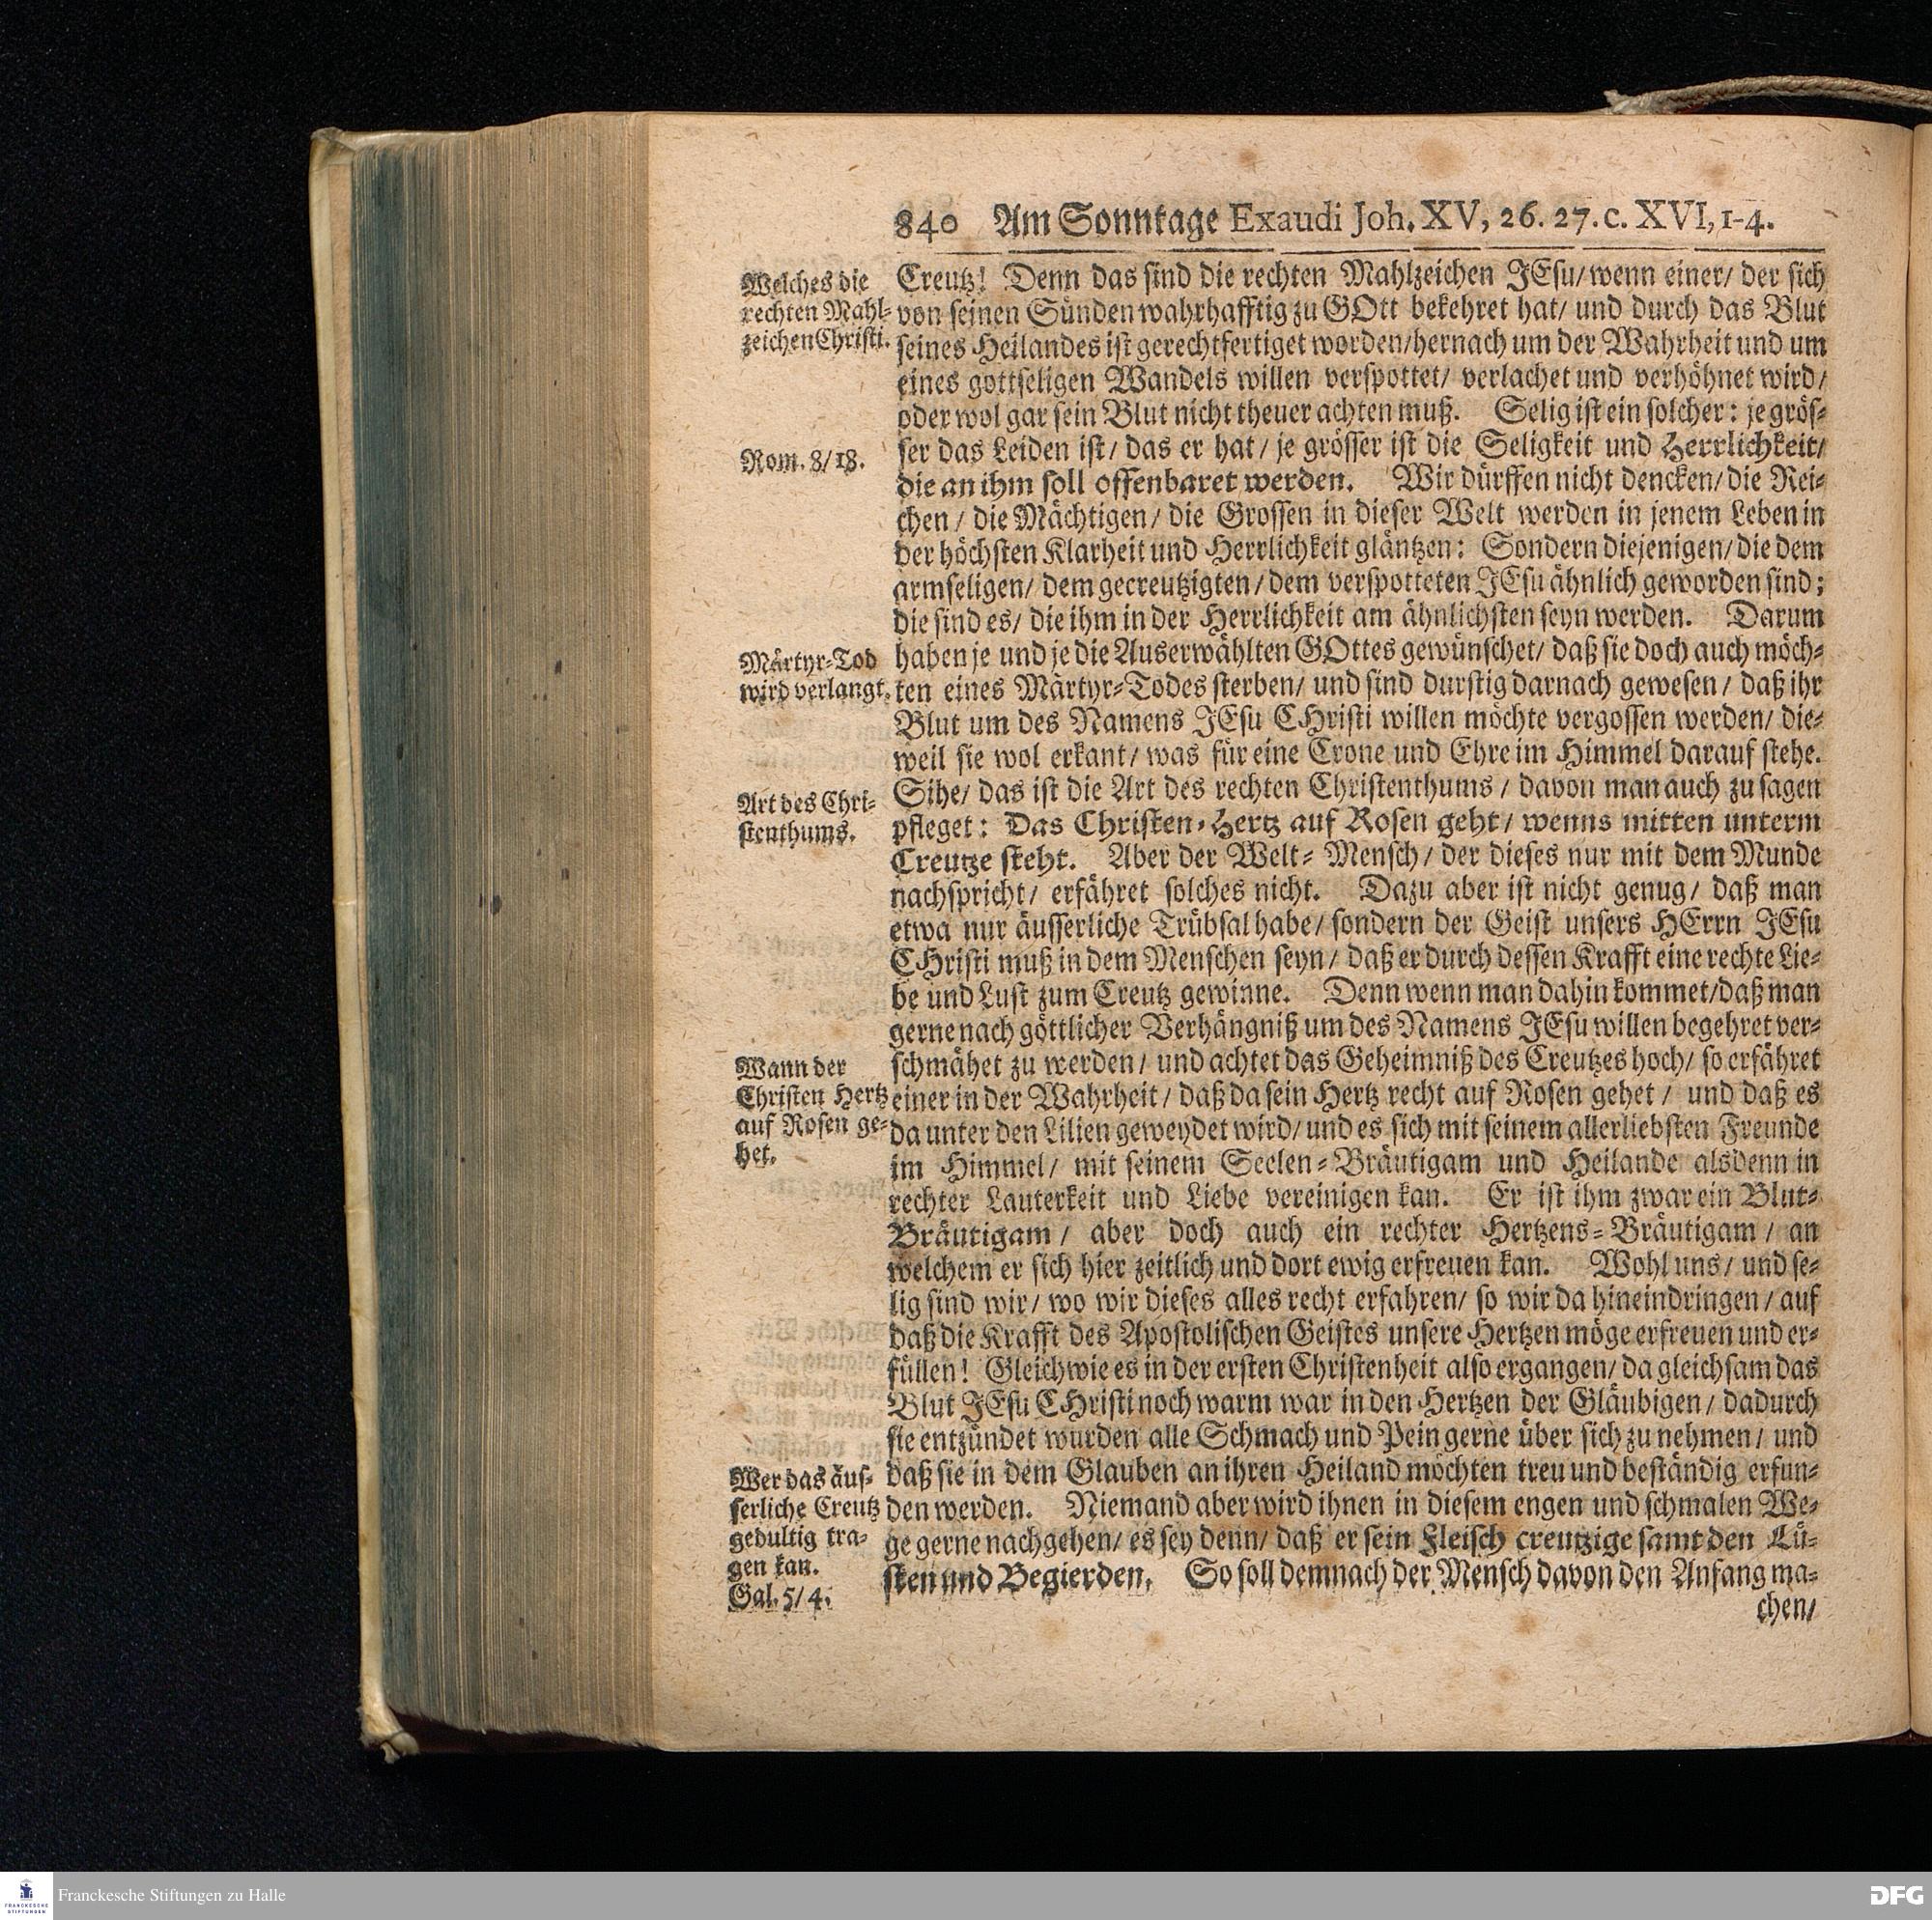 840 Am Sonntage Exaudi Joh. XV, 26. 27. c. XVI, 1-4.
Welches die
rechten Mahl-
zeichen Christi.
Creutz! Denn das sind die rechten Mahlzeichen JEsu/ wenn einer/ der sich
von seinen Sünden wahrhafftig zu GOtt bekehret hat/ und durch das Blut
seines Heilandes ist gerechtfertiget worden/ hernach um der Wahrheit und um
eines gottseligen Wandels willen verspottet/ verlachet und verhöhnet wird/
oder wol gar sein Blut nicht theuer achten muß. Selig ist ein solcher: je grös-
Rom. 8/18.
ser das Leiden ist/ das er hat/ je grösser ist die Seligkeit und Herrlichkeit/
die an ihm soll offenbaret werden. Wir dürffen nicht dencken/ die Rei-
chen/ die Mächtigen/ die Grossen in dieser Welt werden in jenem Leben in
der höchsten Klarheit und Herrlichkeit gläntzen: Sondern diejenigen/ die dem
armseligen/ dem gecreutzigten/ dem verspotteten JEsu ähnlich geworden sind;
die sind es/ die ihm in der Herrlichkeit am ähnlichsten seyn werden. Darum
Märtyr-Tod
wird verlangt.
haben je und je die Auserwählten GOttes gewünschet/ daß sie doch auch möch-
ten eines Märtyr-Todes sterben/ und sind durstig darnach gewesen/ daß ihr
Blut um des Namens JEsu CHristi willen möchte vergossen werden/ die-
weil sie wol erkant/ was für eine Crone und Ehre im Himmel darauf stehe.
Art des Chri-
stenthums.
Sihe/ das ist die Art des rechten Christenthums/ davon man auch zu sagen
pfleget: Das Christen-Hertz auf Rosen geht/ wenns mitten unterm
Creutze steht. Aber der Welt-Mensch/ der dieses nur mit dem Munde
nachspricht/ erfähret solches nicht. Dazu aber ist nicht genug/ daß man
etwa nur äusserliche Trübsal habe/ sondern der Geist unsers HErrn JEsu
CHristi muß in dem Menschen seyn/ daß er durch dessen Krafft eine rechte Lie-
be und Lust zum Creutz gewinne. Denn wenn man dahin kommet/ daß man
gerne nach göttlicher Verhängniß um des Namens JEsu willen begehret ver-
Wann der
Christen Hertz
auf Rosen ge-
het.
schmähet zu werden/ und achtet das Geheimniß des Creutzes hoch/ so erfähret
einer in der Wahrheit/ daß da sein Hertz recht auf Rosen gehet/ und daß es
da unter den Lilien geweydet wird/ und es sich mit seinem allerliebsten Freunde
im Himmel/ mit seinem Seelen-Bräutigam und Heilande alsdenn in
rechter Lauterkeit und Liebe vereinigen kan. Er ist ihm zwar ein Blut-
Bräutigam/ aber doch auch ein rechter Hertzens-Bräutigam/ an
welchem er sich hier zeitlich und dort ewig erfreuen kan. Wohl uns/ und se-
lig sind wir/ wo wir dieses alles recht erfahren/ so wir da hineindringen/ auf
daß die Krafft des Apostolischen Geistes unsere Hertzen möge erfreuen und er-
füllen! Gleichwie es in der ersten Christenheit also ergangen/ da gleichsam das
Blut JEsu CHristi noch warm war in den Hertzen der Gläubigen/ dadurch
sie entzündet wurden alle Schmach und Pein gerne über sich zu nehmen/ und
Wer das äus-
serliche Creutz
gedultig tra-
gen kan.
Gal. 5/4.
daß sie in dem Glauben an ihren Heiland möchten treu und beständig erfun-
den werden. Niemand aber wird ihnen in diesem engen und schmalen We-
ge gerne nachgehen/ es sey denn/ daß er sein Fleisch creutzige samt den Lü-
sten und Begierden. So soll demnach der Mensch davon den Anfang ma-
chen/
FRANCKESCHE
STIFTUNGEN
Franckesche Stiftungen zu Halle
DFG